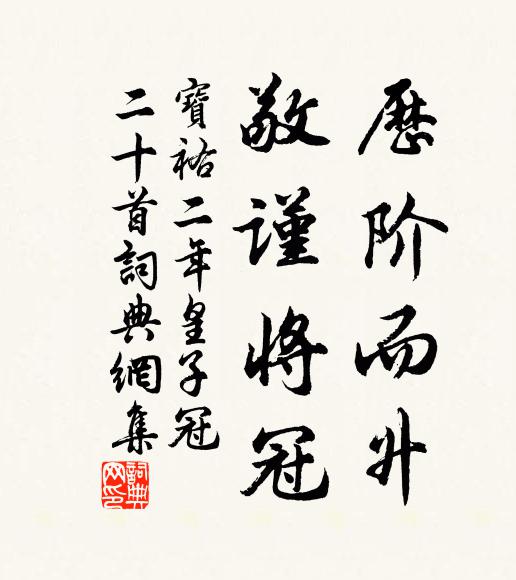 歷阶而升
敬謹將冠
寶祐二年皇子冠
二十首詞典網集
詞典网印